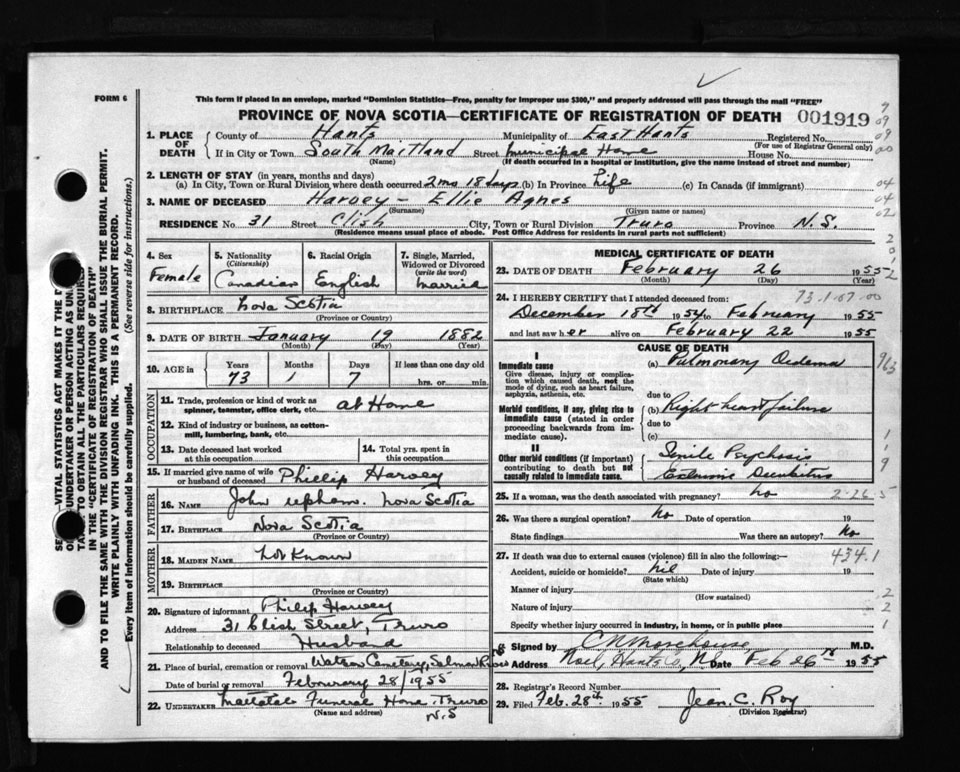 FORM 6
This form if placed in an envelope, marked "Dominion Statistics—Free, penalty for improper use $300," and properly addressed will pass through the mail "FREE"
PROVINCE OF NOVA SCOTIA—CERTIFICATE OF REGISTRATION OF DEATH 001919
1. PLACE OF DEATH County of Hants Municipality of East Hants Registered No.
(For use of Registrar General only)
If in City or Town South Maitland Street Municipal Home House No.
(Name) (If death occurred in a hospital or institution, give the name instead of street and number)
2. LENGTH OF STAY (in years, months and days)
(a) In City, Town or Rural Division where death occurred 2 mo 18 days (b) In Province Life (c) In Canada (if immigrant)
3. NAME OF DECEASED Harvey - Ellie Agnes
(Surname) (Given name or names)
RESIDENCE No 31 Street Clish City, Town or Rural Division Truro Province N.S.
(Residence means usual place of abode. Post Office Address for residents in rural parts not sufficient)
4. Sex
Female
5. Nationality
(Citizenship)
Canadian
6. Racial Origin
English
7. Single, Married, Widowed or Divorced
(write the word)
Married
8. BIRTHPLACE Nova Scotia
(Province or Country)
9. DATE OF BIRTH January 19 1882
(Month) (Day) (Year)
10. AGE in Years Months Days If less than one day old
73 1 7 hrs. or min.
OCCUPATION
11. Trade, profession or kind of work as
spinner, teamster, office clerk, etc. at Home
12. Kind of industry or business, as cotton-
mill, lumbering, bank, etc.
13. Date deceased last worked at this occupation
14. Total yrs. spent in this occupation
15. If married give name of wife or husband of deceased Phillip Harvey
FATHER
16. NAME John Upham. Nova Scotia
17. BIRTHPLACE Nova Scotia
(Province or Country)
MOTHER
18. MAIDEN NAME Not Known
19. BIRTHPLACE
(Province or Country)
20. Signature of informant Philip Harvey
Address 31 Clish Street, Truro
Relationship to deceased Husband
21. Place of burial, cremation or removal Watson Cemetery, Salmon River
Date of burial or removal February 28/1955
22. UNDERTAKER Mattatall Funeral Home Truro
(Name and address) N.S
MEDICAL CERTIFICATE OF DEATH
23. DATE OF DEATH February 26 1955
(Month) (Day) (Year)
24. I HEREBY CERTIFY that I attended deceased from: 73.1.07.00
December 18th 1954 to February 1955
and last saw her alive on February 22 1955
CAUSE OF DEATH
I
Immediate cause
Give disease, injury or complication which caused death, not the mode of dying, such as heart failure, asphyxia, asthenia, etc.
(a) Pulmonary Oedema 963
due to
Morbid conditions, if any, giving rise to immediate cause (stated in order proceeding backwards from immediate cause).
(b) Right heart failure
due to
(c)
II
Other morbid conditions (if important) contributing to death but not causally related to immediate cause.
Senile Psychosis
Extensive Decubitus
25. If a woman, was the death associated with pregnancy? No 2-26 5
26. Was there a surgical operation? No Date of operation 19
State findings Was there an autopsy? No
27. If death was due to external causes (violence) fill in also the following:— 434.1
Accident, suicide or homicide? nil Date of injury 19
(State which)
Manner of injury
(How sustained)
Nature of injury
Specify whether injury occurred in industry, in home, or in public place
Signed by C N Morehouse M.D.
Address Noel, Hants Co, NS Date Feb 26th 1955
28. Registrar's Record Number
29. Filed Feb. 28th 1955 Jean. C. Roy
(Division Registrar)
AND TO FILE THE SAME WITH THE DIVISION REGISTRAR WHO SHALL ISSUE THE BURIAL PERMIT.
WRITE PLAINLY WITH UNFADING INK. THIS IS A PERMANENT RECORD.
Every item of information should be carefully supplied. (See reverse side for instructions.)